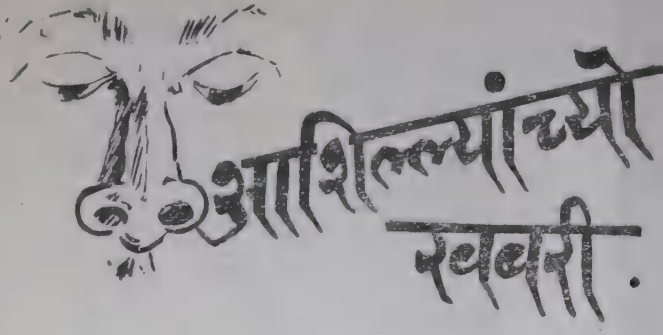 आशिल्ल्यांच्यो
खबरी.